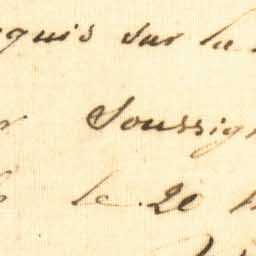 quis sur la
Soussig
le 20